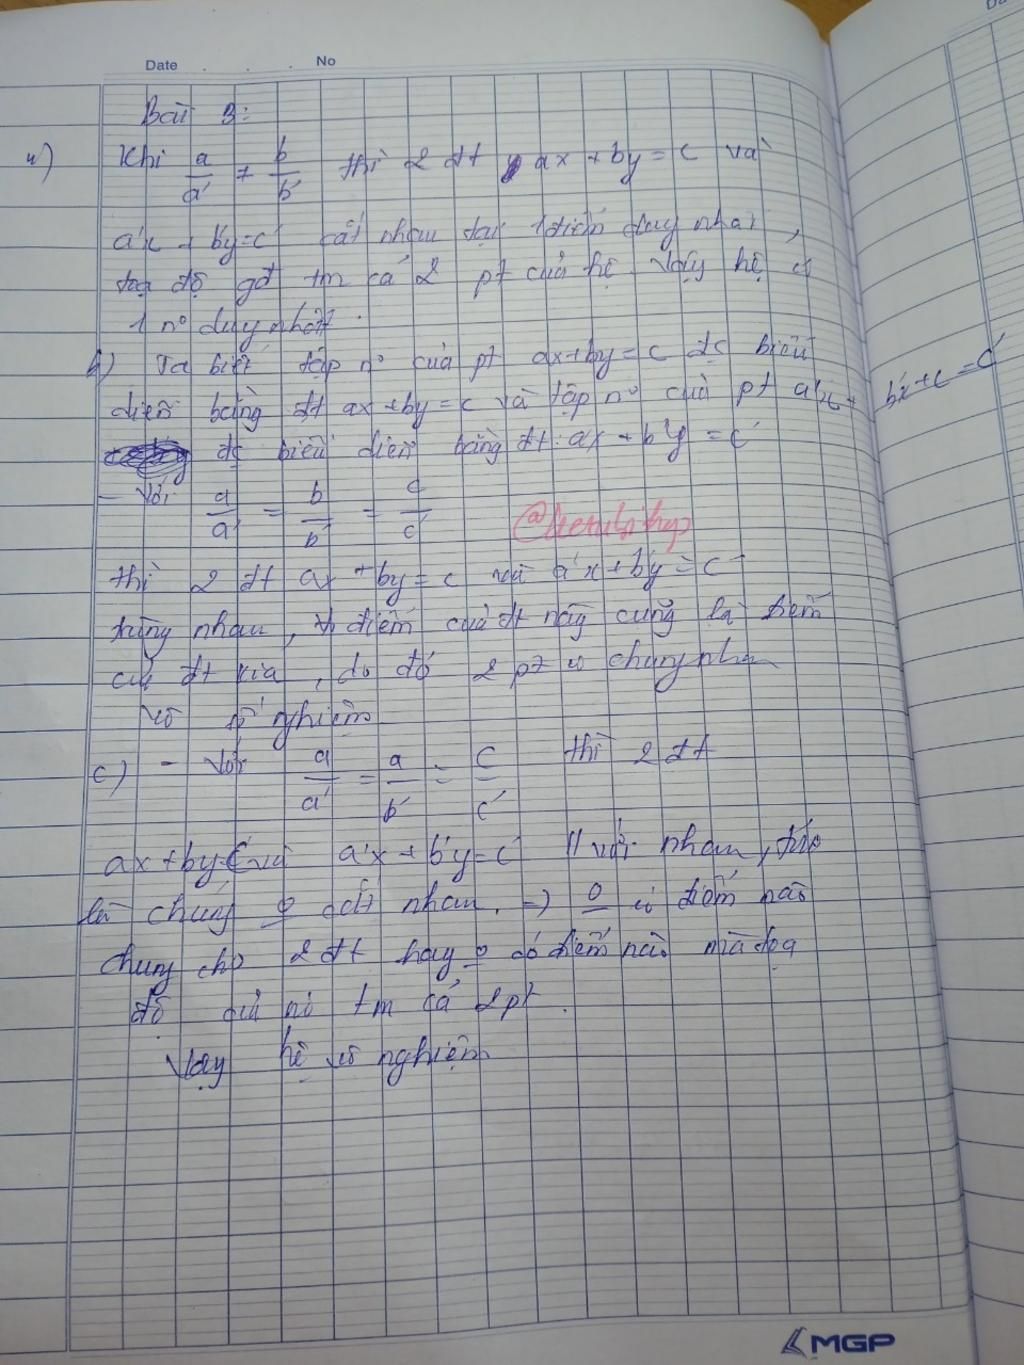 Date . . . No
Bài 3:
a) Khi a/a' ≠ b/b' thì 2 đt ax + by = c và
a'x + b'y = c' cắt nhau tại 1 điểm duy nhất,
tọa độ gđ tm cả 2 pt của hệ. Vậy hệ có
1 no duy nhất.
b) Ta biết tập no của pt ax+by=c đc biểu
diễn bằng đt ax+by=c và tập no của pt
b'x+c=c'
đc biểu diễn bằng đt: ax + b'y = c'
- Với a/a' = b/b' = c/c'
thì 2 đt ax + by = c và a'x + b'y = c'
trùng nhau, điểm của đt này cũng là điểm
của đt kia, do đó 2 pt có chung nhau
vô số nghiệm
c) - Với a/a' = a/b' = c/c' thì 2 đt
ax+by=c và a'x + b'y = c' // với nhau, tức
là chúng 0 cắt nhau. => 0 có điểm nào
chung cho 2 đt hay 0 có điểm nào mà tọa
độ của nó tm cả 2 pt.
Vậy hệ vô nghiệm
MGP